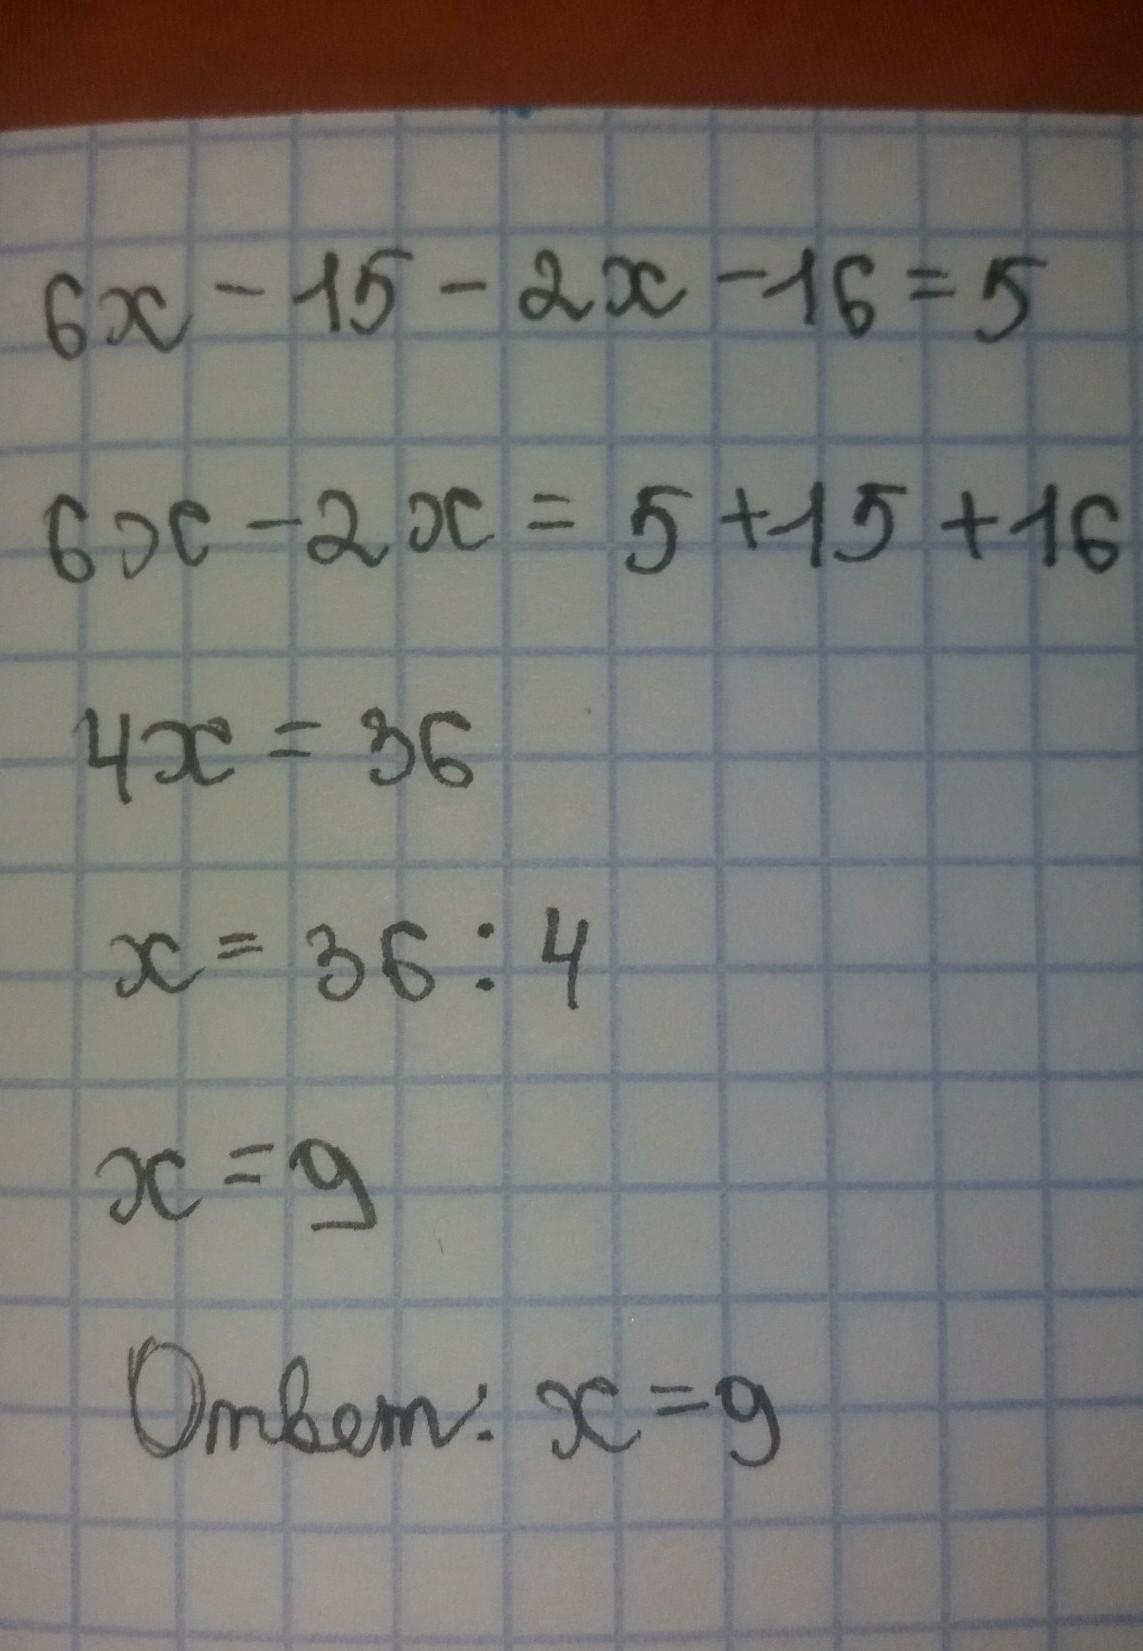 6x - 15 - 2x - 16 = 5
6x - 2x = 5 + 15 + 16
4x = 36
x = 36 : 4
x = 9
Ответ: x = 9